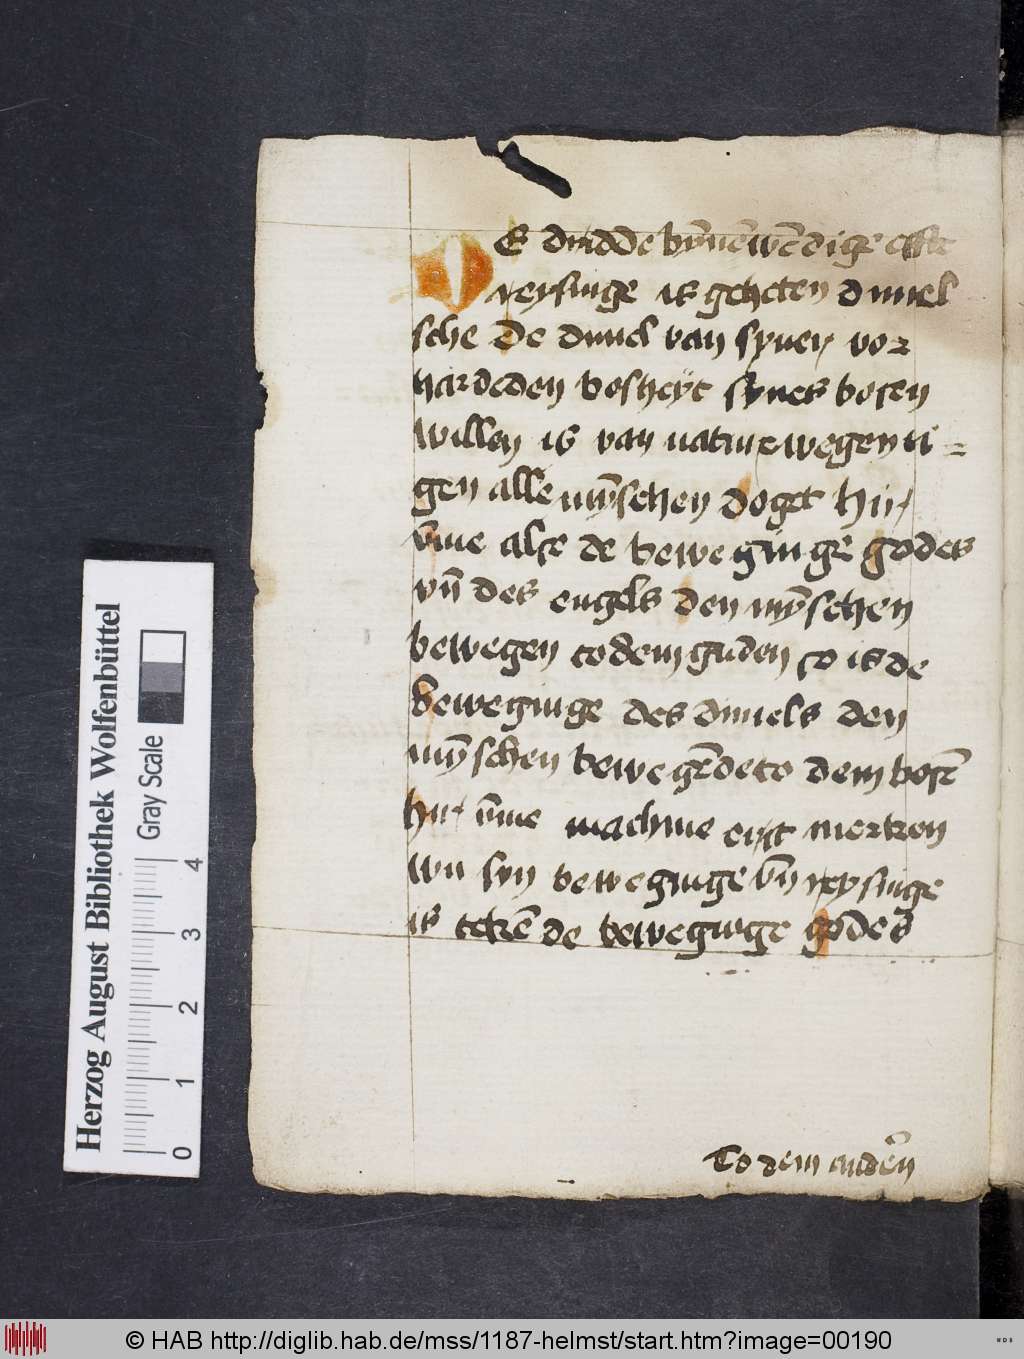 DE drudde bȳnēwēdige effte
reysinge is geheten duuel
sche De duuel van syner vor
hardeden bosheyt synes bosen
willen is van natur wegen ti =
gen alle mȳschen doget Hir
v̄me alse de beweginge godes
vn̄ des engels den mȳschen
bewegen to dem guden so is de
beweginge des duuels den
mȳschen bewegēde to dem bosē
hir v̄me machme erst merken
wu syn beweginge vn̄ reysinge
is tekē de beweginge godes
To dem andēn
Herzog August Bibliothek Wolfenbüttel
Gray Scale
0 1 2 3 4
© HAB http://diglib.hab.de/mss/1187-helmst/start.htm?image=00190
WDB